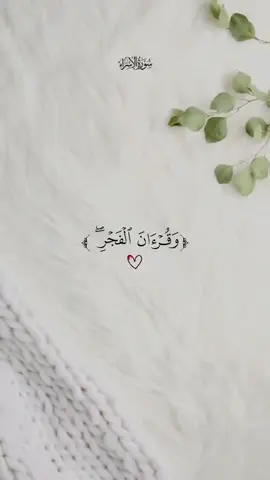 سورة الإسراء
﴿وَقُرْءَانَ ٱلْفَجْرِۖ﴾